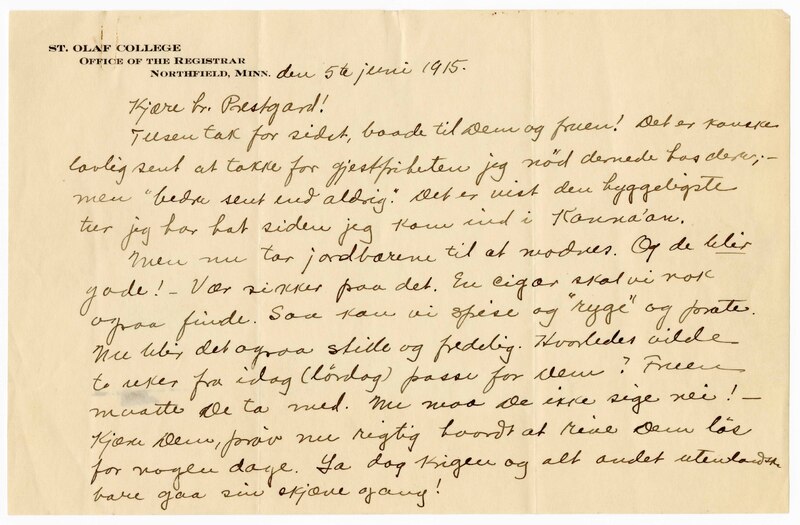 ST. OLAF COLLEGE
OFFICE OF THE REGISTRAR
NORTHFIELD, MINN. den 5te juni 1915.
Kjære hr. Prestgard!
Tusen tak for sidst, baade til Dem og fruen! Det er kanske
lovlig sent at takke for gjestfriheten jeg nød dernede hos dere; –
men "bedre sent end aldrig". Det er vist den hyggeligste
tur jeg har hat siden jeg kom ind i Kanna'an.
Men nu tar jordbærene til at modnes. Og de blir
gode! – Vær sikker paa det. En cigar skal vi nok
ogsaa finde. Saa kan vi spise og "ryge" og prate.
Nu blir det ogsaa stille og fredelig. Hvorledes vilde
to uker fra idag (lördag) passe for Dem? Fruen
maatte De ta med. Nu maa De ikke sige nei! –
Kjære Dem, prøv nu rigtig haardt at rive Dem løs
for nogen dage. La dog krigen og alt andet utenlandsk
bare gaa sin skjæve gang!